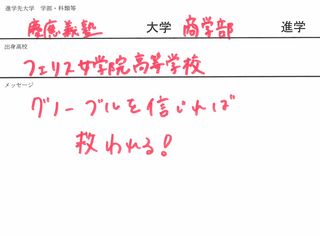 進学先大学 学部・科類等
慶應義塾 大学 商学部 進学
出身高校
フェリス女学院高等学校
メッセージ
グノーブルを信じれば
救われる!